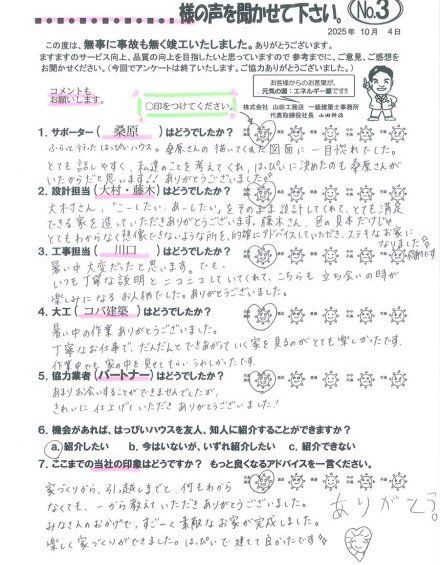 様の声を聞かせて下さい。 No.3
2025年 10月 4日
この度は、無事に事故も無く竣工いたしました。ありがとうございます。
ますますのサービス向上、品質の向上を目指したいと思っていますので 参考までに、ご意見、ご感想を
お聞かせください。(今回でアンケートは終了いたします。ご協力ありがとうございました。)
コメントも
お願いします。
○印をつけてください。
お客様からのお言葉が、
元気の源:エネルギー源です!!
株式会社 山田工務店 一級建築士事務所
代表取締役社長 山田
1. サポーター( 桑原 )はどうでしたか?
ふらっと行ったはっぴぃハウス。桑原さんの描いてくれた図面に一目惚れでした。
とても話しやすく、私達のことを考えてくれ、はっぴぃに決めたのも桑原さんが
いたからだと思います!! ありがとうございました。
2. 設計担当(大村・藤木)はどうでしたか?
大村さん、「こーしたい、あーしたい」をそのまま設計してくれて、とても満足
できる家を造っていただきありがとうございます。藤木さん、色の見本だけじゃ
とてもわからなく想像できないような所を、的確にアドバイスしていただき、ステキなお家に
なりました
3. 工事担当( 川口 )はどうでしたか?
暑い中大変だったと思います。でも、
いつも丁寧な説明とニコニコしていてくれて、こちらも立ち会いの時が
楽しみになるお人柄でした。ありがとうございました。
4. 大工( コバ建築 )はどうでしたか?
暑い中の作業ありがとうございました。
丁寧なお仕事で、だんだんとできあがっていく家を見るのがとても楽しかったです。
作業中でも家の中を見せてもらいうれしかったです。
5. 協力業者(パートナー)はどうでしたか?
あまりお会いすることができませんでしたが、
きれいに仕上げていただきありがとうございました!
6. 機会があれば、はっぴいハウスを友人、知人に紹介することができますか?
a. 紹介したい b. 今はいないが、いずれ紹介したい c. 紹介できない
7. ここまでの当社の印象はどうですか? もっと良くなるアドバイスを一言ください。
家づくりから、引っ越しまでと、何もわから
なくても、一から教えていただきありがとうございました。
みなさんのおかげで、すごーく素敵なお家が完成しました。
楽しく家づくりができました。はっぴぃで建てて良かったです
ありがとう。